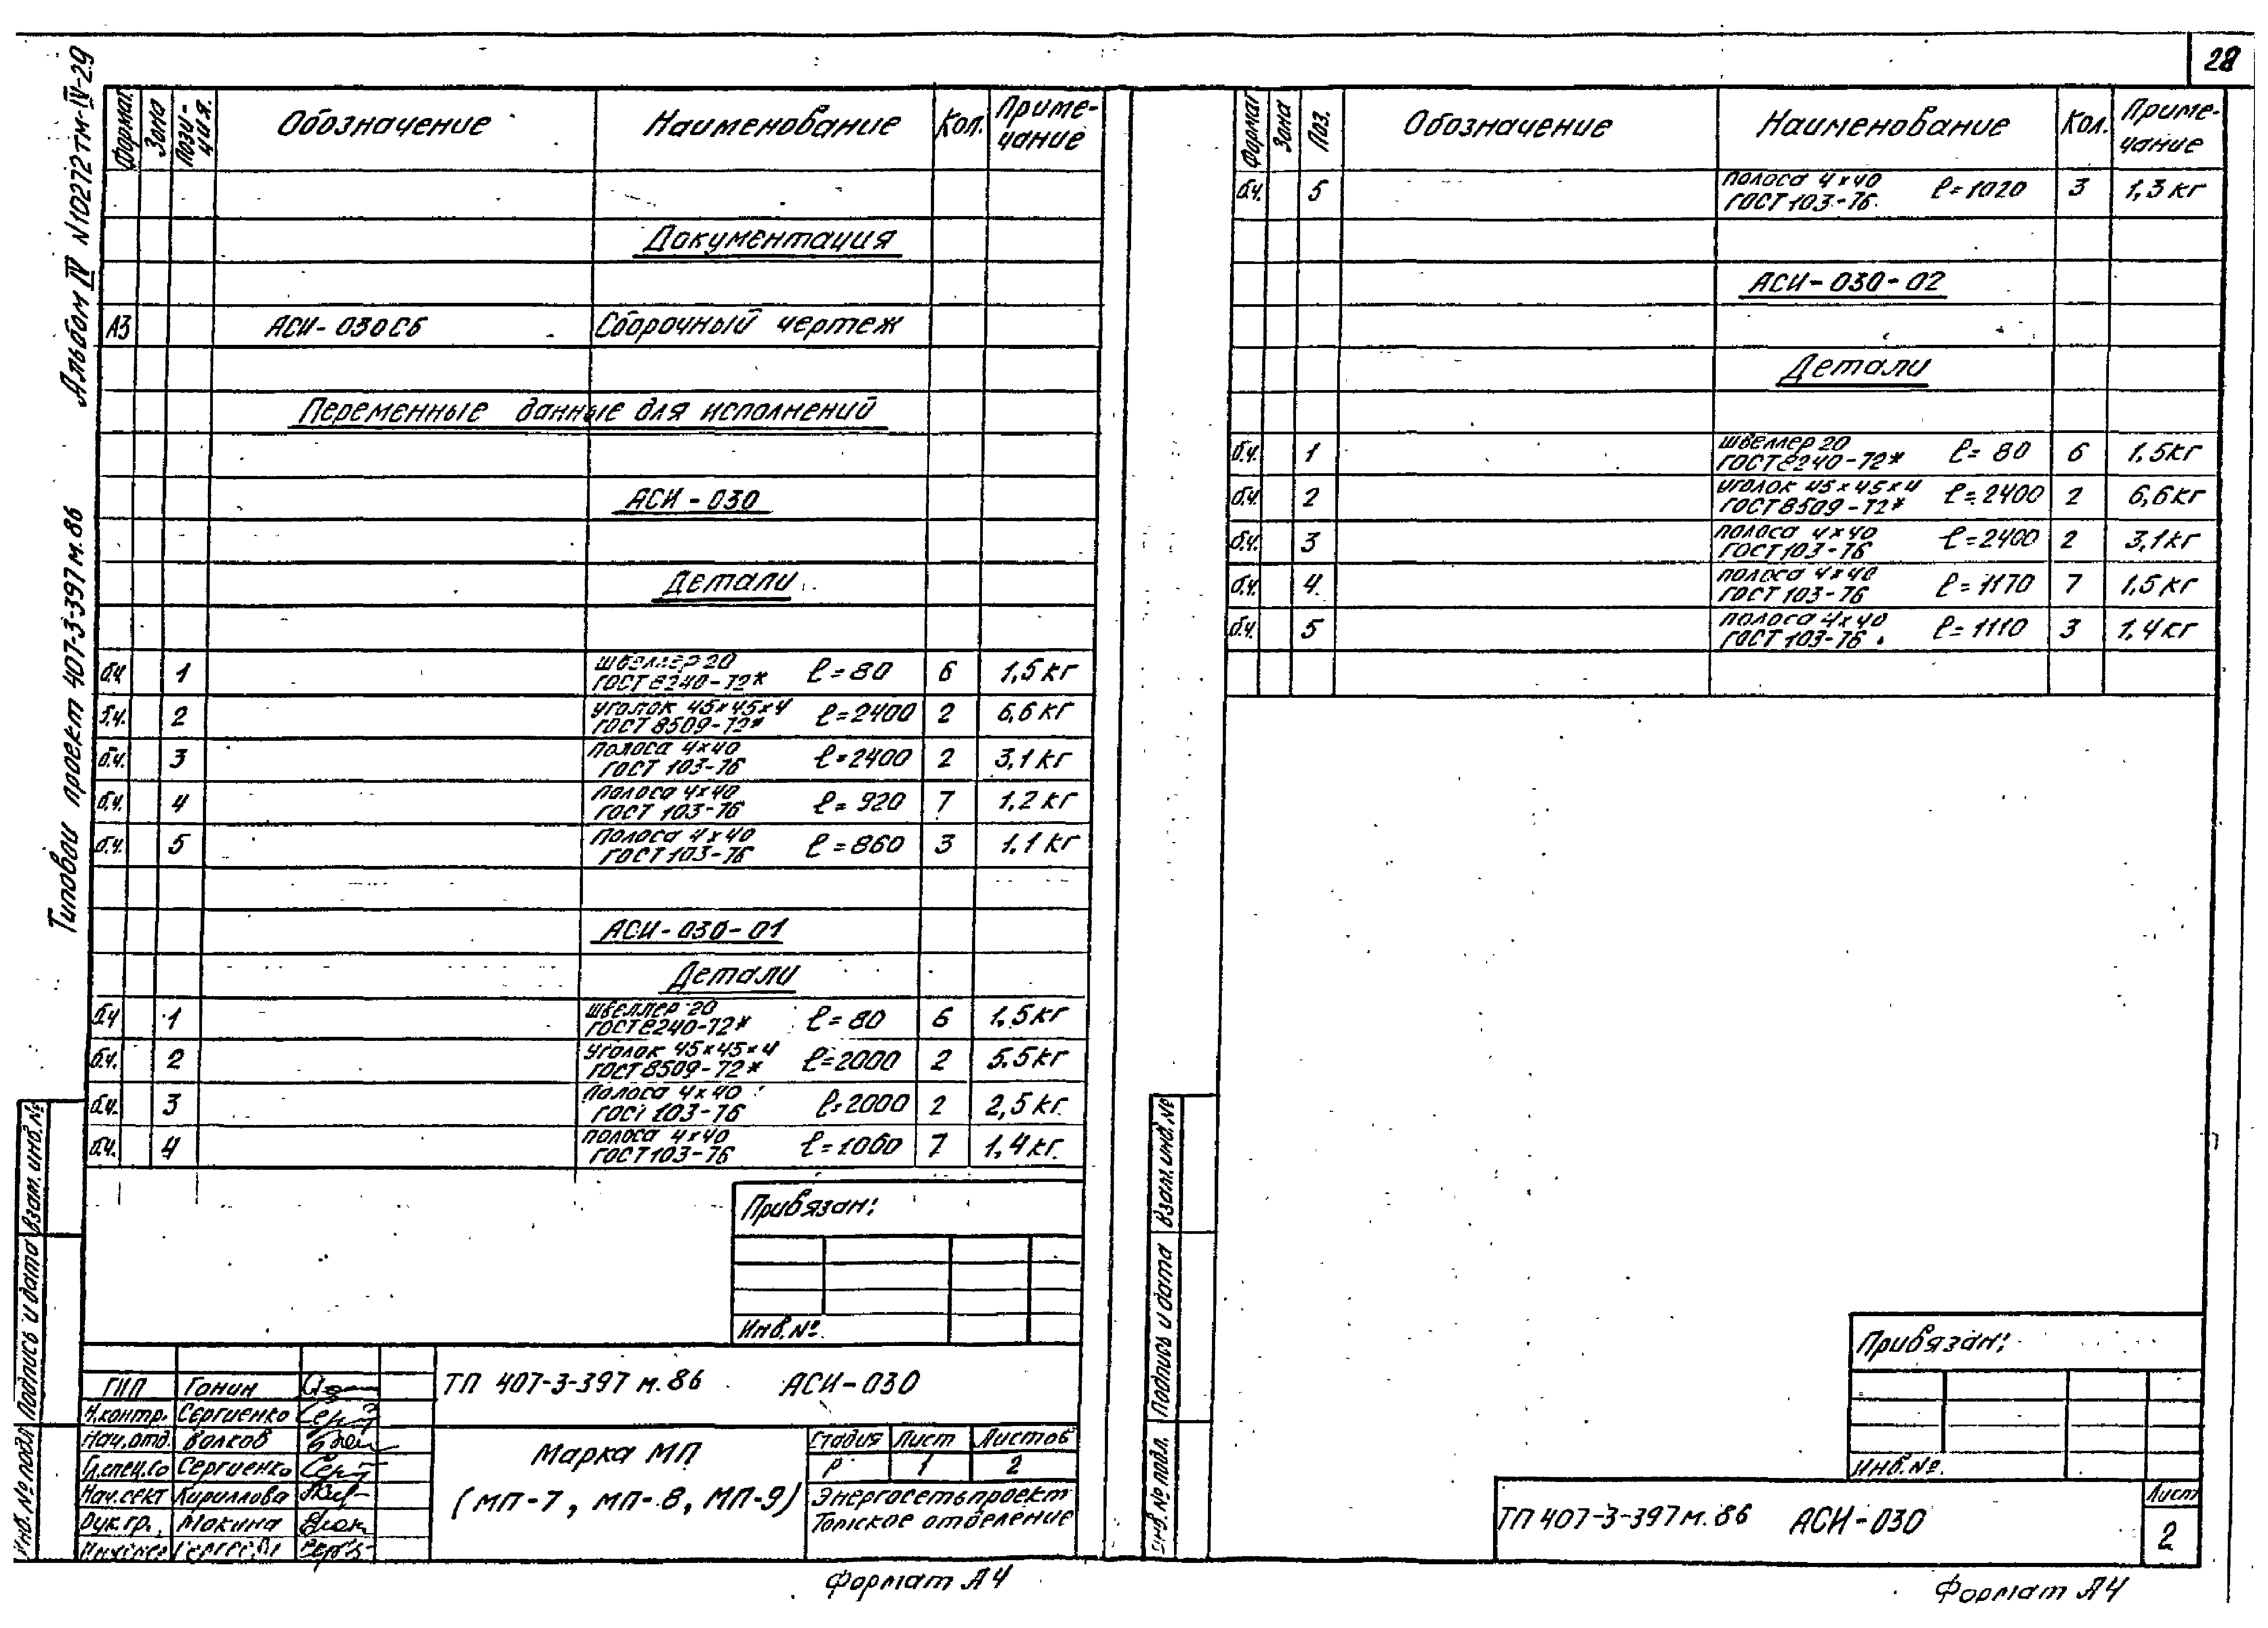 28
Альбом IV N10272тм-IV-29
Типовой проект 407-3-397м.86
Формат Зона Пози-ция. Обозначение Наименование Кол. Приме-чание
Документация
А3 АСИ-030СБ Сборочный чертеж
Переменные данные для исполнений
АСИ-030
Детали
б.ч. 1 швеллер 20 ГОСТ 8240-72* ℓ=80 6 1,5кг
б.ч. 2 уголок 45×45×4 ГОСТ 8509-72* ℓ=2400 2 6,6кг
б.ч. 3 полоса 4×40 ГОСТ 103-76 ℓ=2400 2 3,1кг
б.ч. 4 полоса 4×40 ГОСТ 103-76 ℓ=920 7 1,2кг
б.ч. 5 полоса 4×40 ГОСТ 103-76 ℓ=860 3 1,1кг
АСИ-030-01
Детали
б.ч 1 швеллер 20 ГОСТ 8240-72* ℓ=80 6 1,5кг
б.ч. 2 уголок 45×45×4 ГОСТ 8509-72* ℓ=2000 2 5.5кг
б.ч. 3 полоса 4×40 ГОСТ 103-76 ℓ=2000 2 2,5кг.
б.ч. 4 полоса 4×40 ГОСТ 103-76 ℓ=1060 7 1,4кг.
Привязан:
Инв.№.
ТП 407-3-397м.86 АСИ-030
ГИП Гонин
Н.контр. Сергиенко
Нач.отд. Волков
Гл.спец.со Сергиенко
Нач.сект Кириллова
Рук.гр. Мокина
Марка МП
(МП-7, МП-8, МП-9)
Стадия Лист Листов
Р 1 2
Энергосетьпроект
Томское отделение
Инв.№ подл Подпись и дата Взам. инв.№
Формат А4
Формат Зона Поз. Обозначение Наименование Кол. Приме-чание
б.ч. 5 полоса 4×40 ГОСТ 103-76. ℓ=1020 3 1,3кг
АСИ-030-02
Детали
б.ч. 1 швеллер 20 ГОСТ 8240-72* ℓ=80 6 1.5кг
б.ч. 2 уголок 45×45×4 ГОСТ 8509-72* ℓ=2400 2 6,6кг
б.ч. 3 полоса 4×40 ГОСТ 103-76 ℓ=2400 2 3,1кг
б.ч. 4 полоса 4×40 ГОСТ 103-76 ℓ=1170 7 1,5кг
б.ч. 5 полоса 4×40 ГОСТ 103-76 ℓ=1110 3 1,4кг
Привязан:
Инв.№.
ТП 407-3-397м.86 АСИ-030
Лист
2
Инв.№ подл. Подпись и дата Взам. инв.№
Формат А4